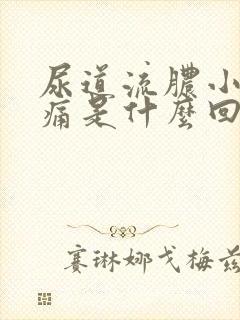 尿道流膿小
痛是什麼回
赛琳娜戈梅兹